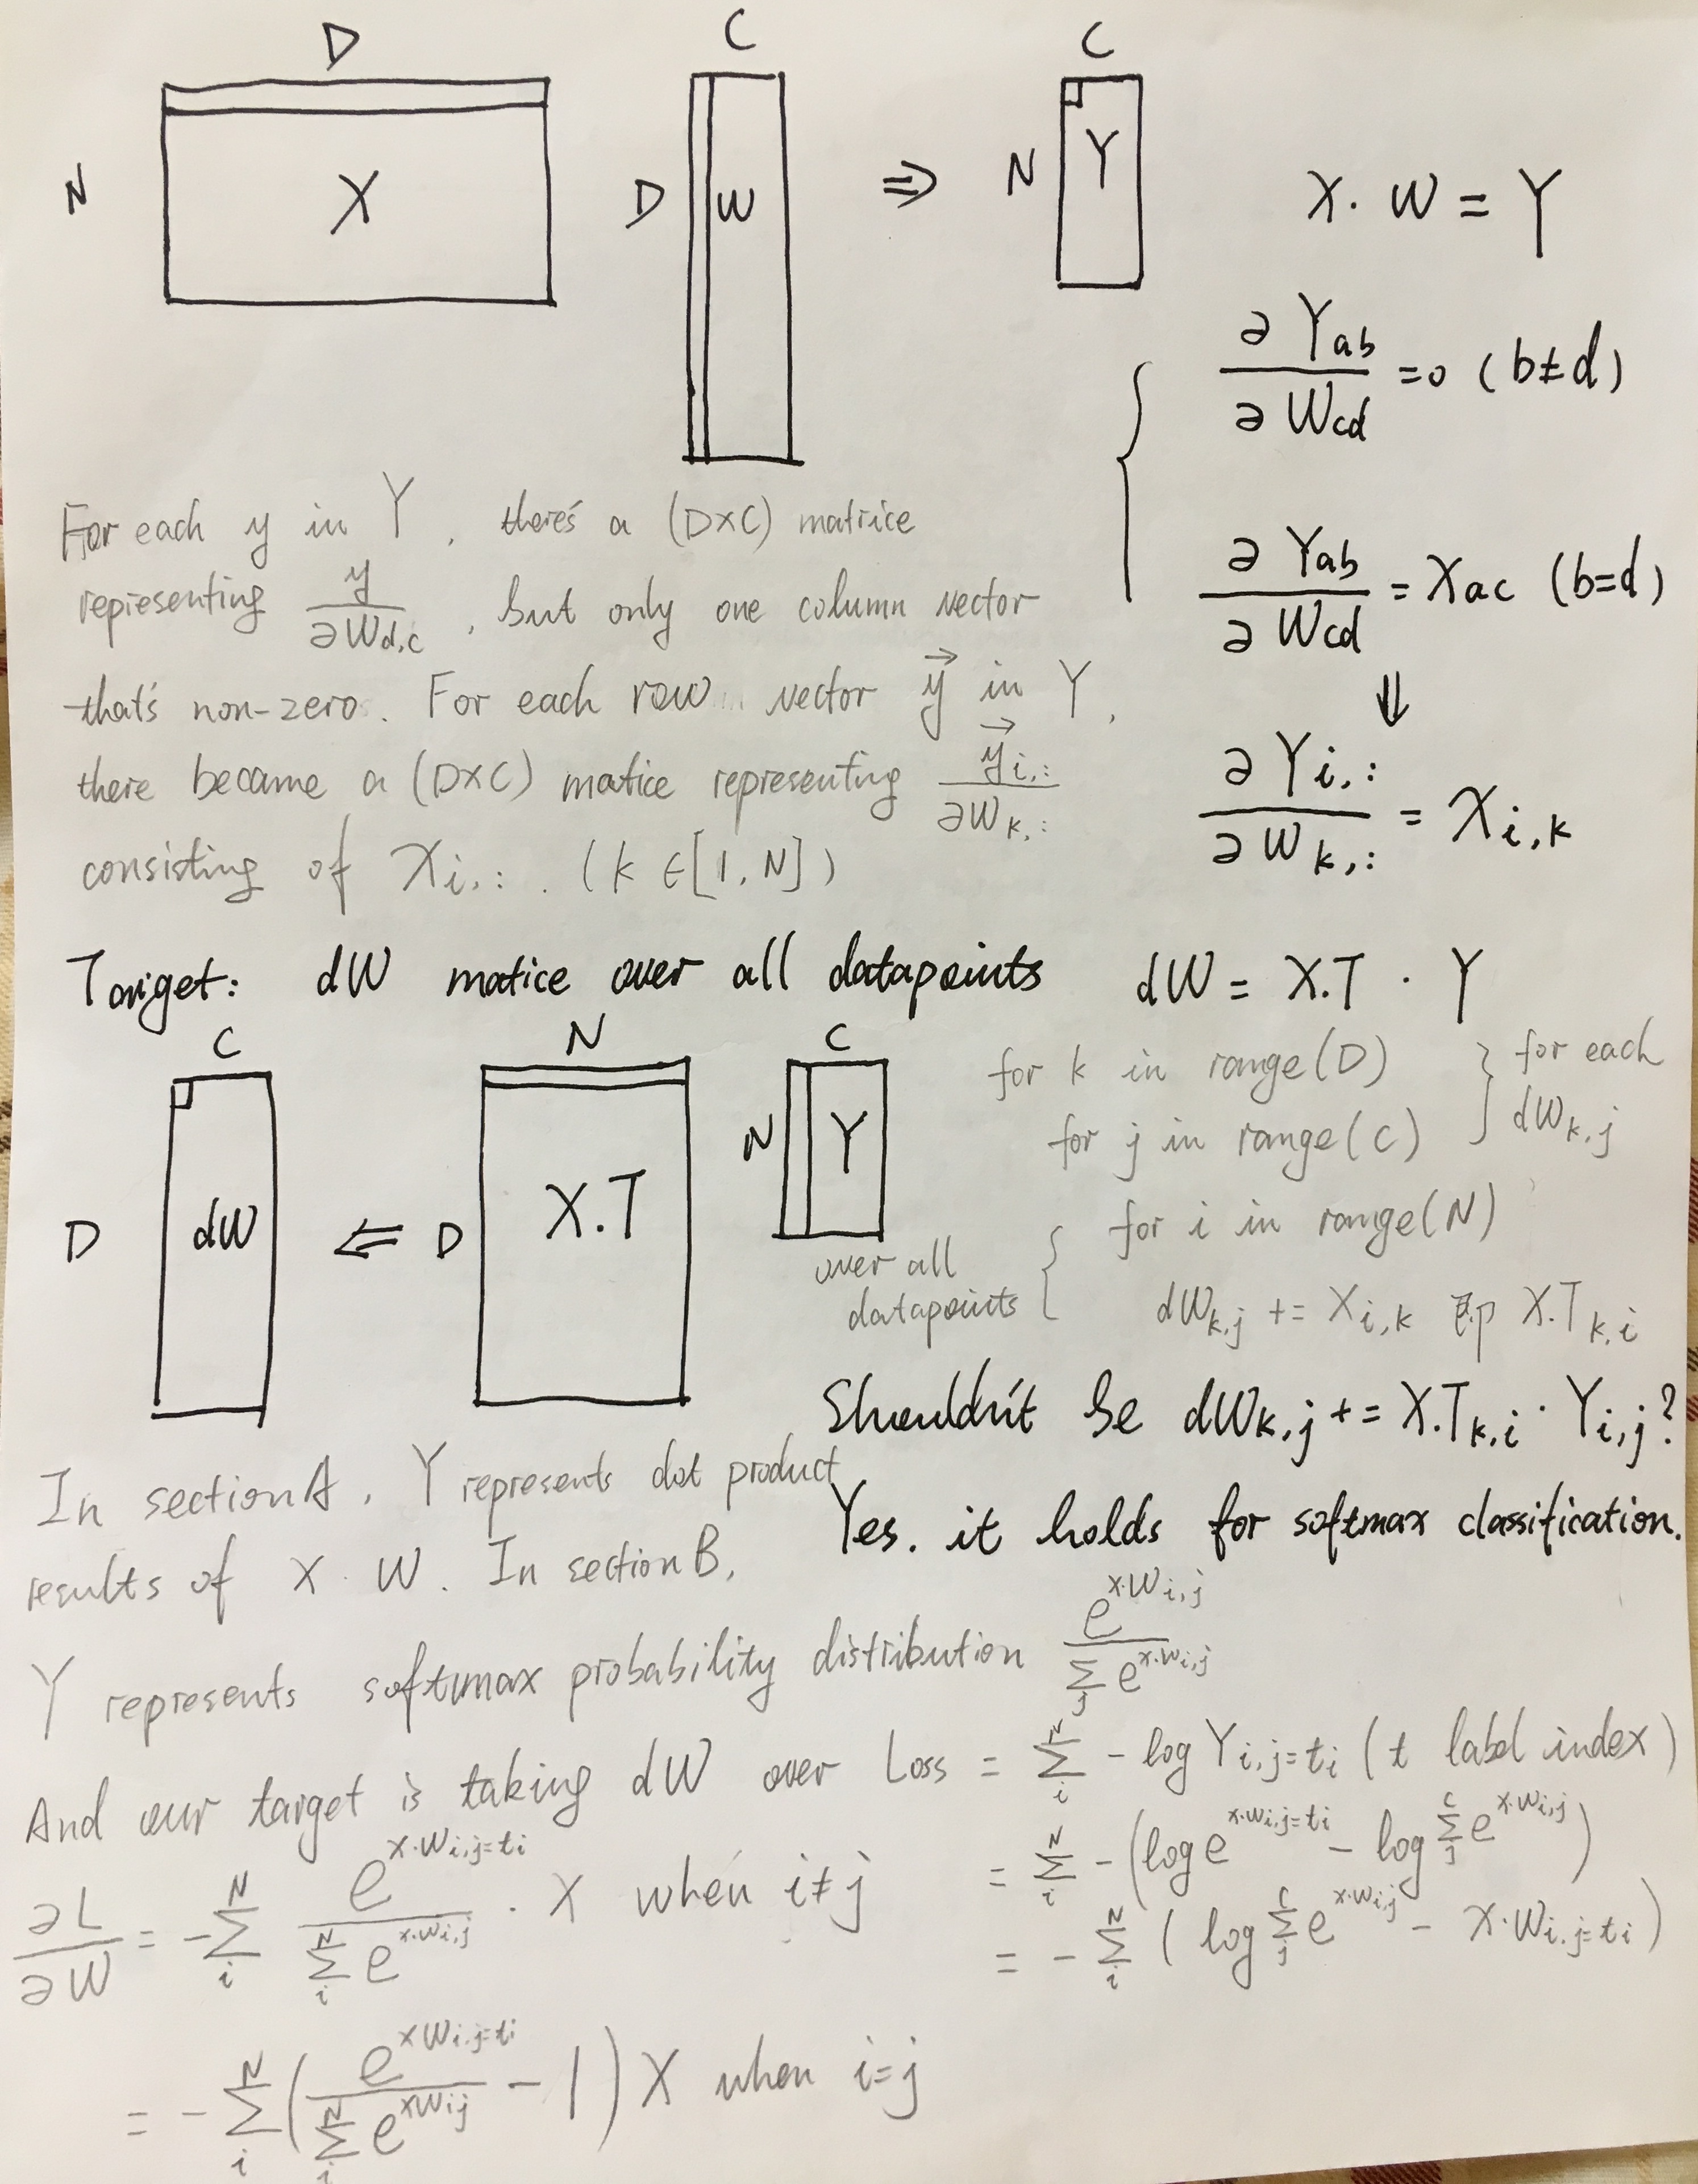 D
C
C
N
X
D
W
⇒
N
Y
X · W = Y
∂Yab / ∂Wcd = 0 (b≠d)
∂Yab / ∂Wcd = Xac (b=d)
⇓
∂Yi,: / ∂Wk,: = Xi,k
For each y in Y, there's a (D×C) matrice
representing y / ∂Wd,c, but only one column vector
that's non-zero. For each row vector y⃗ in Y,
there became a (D×C) matice representing y⃗i,: / ∂Wk,:
consisting of Xi,: . (k ∈ [1, N])
Target: dW matice over all datapoints dW = X.T · Y
C
N
C
D
dW
⇐
D
X.T
N
Y
for k in range(D) } for each
for j in range(C) dWk,j
over all datapoints { for i in range(N)
dWk,j += Xi,k 即 X.Tk,i
Shouldn't be dWk,j += X.Tk,i · Yi,j ?
Yes. it holds for softmax classification.
In section A, Y represents dot product
results of X · W. In section B,
Y represents softmax probability distribution e^(x·Wi,j) / Σj e^(x·Wi,j)
And our target is taking dW over Loss = Σi^N - log Yi,j=ti (t label index)
= Σi^N - (log e^(x·Wi,j=ti) - log Σj^C e^(x·Wi,j))
= - Σi^N (log Σj^C e^(x·Wi,j) - X·Wi,j=ti)
∂L / ∂W = - Σi^N e^(x·Wi,j=ti) / Σi^N e^(x·Wi,j) · X when i≠j
= - Σi^N (e^(xWi,j=ti) / Σi^N e^(xWij) - 1) X when i=j